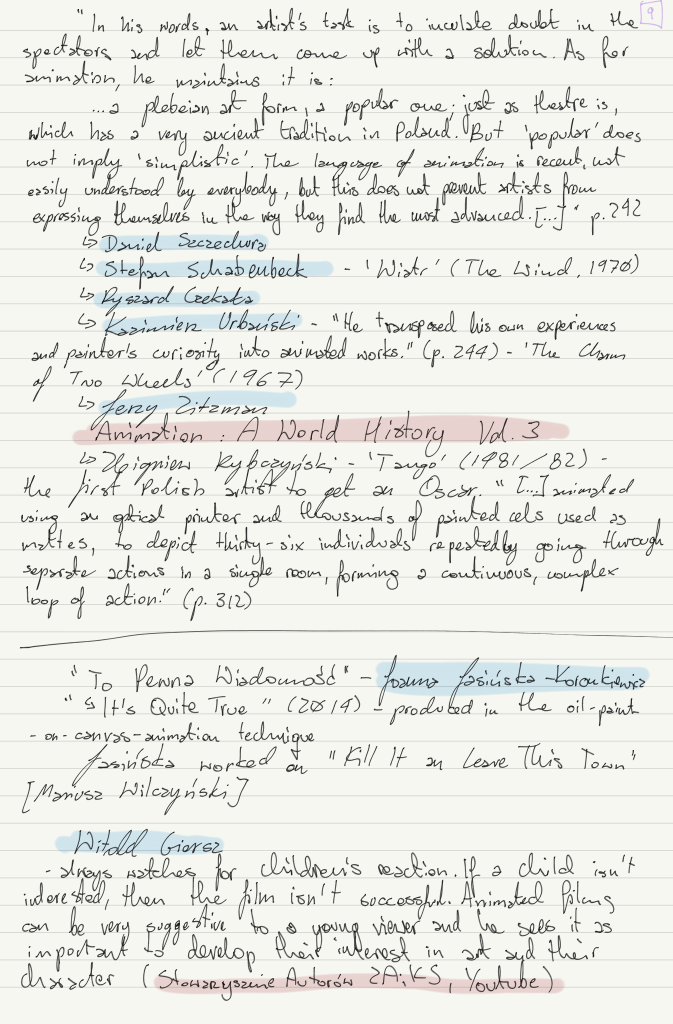 9
"In his words, an artist's task is to inculate doubt in the
spectators and let them come up with a solution. As for
animation, he maintains it is:
...a plebeian art form, a popular one; just as theatre is,
which has a very ancient tradition in Poland. But 'popular' does
not imply 'simplistic'. The language of animation is recent, not
easily understood by everybody, but this does not prevent artists from
expressing themselves in the way they find the most advanced. [...]" p.242
↳ Daniel Szczechura
↳ Stefan Schabenbeck - 'Wiatr' (The Wind, 1970)
↳ Ryszard Czekała
↳ Kazimierz Urbański - "He transposed his own experiences
and painter's curiosity into animated works." (p. 244) - 'The Charm
of Two Wheels' (1967)
↳ Jerzy Zitzman
Animation: A World History Vol. 3
↳ Zbigniew Rybczyński - 'Tango' (1981/82) -
the first Polish artist to get an Oscar. "[...] animated
using an optical printer and thousands of painted cels used as
mattes, to depict thirty-six individuals repeatedly going through
separate actions in a single room, forming a continuous, complex
loop of action." (p. 312)
"To Pewna Wiadomość" - Joanna Jasińska-Koronkiewicz
"↳ It's Quite True" (2014) - produced in the oil-paint-
-on-canvas-animation technique
Jasińska worked on "Kill It an Leave This Town"
[Mariusz Wilczyński]
Witold Giersz
- always watches for children's reaction. If a child isn't
interested, then the film isn't successful. Animated films
can be very suggestive to a young viewer and he sees it as
important to develop their interest in art and their
character (Stowarzyszenie Autorów ZAiKS, Youtube)